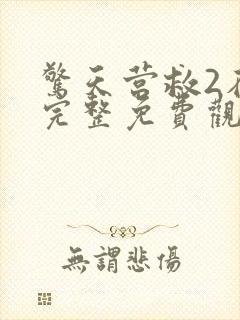 驚天营救2
完整免費觀
無謂悲傷